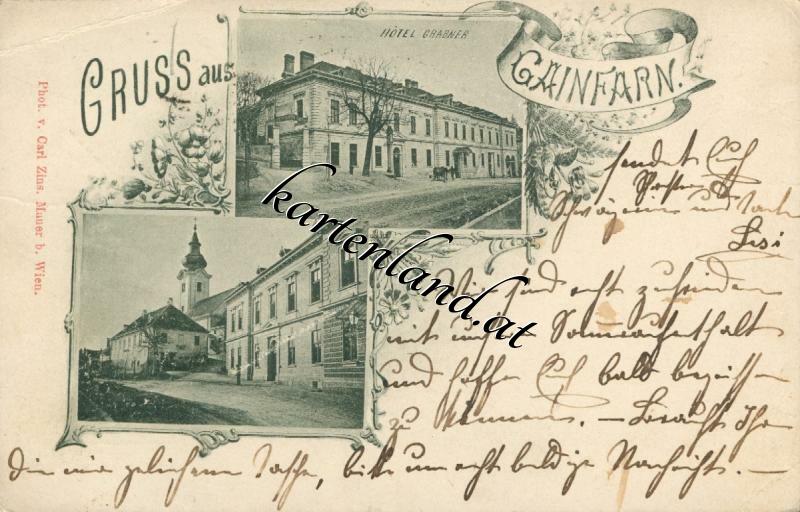 GRUSS aus
HÔTEL GRABNER
GAINFARN.
Phot. v. Carl Zins. Mauer b. Wien.
kartenland.at
sendet Euch
Schwägerin und Tante
Lisi
Wir sind sehr zufrieden
mit unserem Sommeraufenthalt
und hoffe Euch bald begrüssen
zu können. —
die mir geliehene Tasche, bitte um recht baldige Nachricht. —